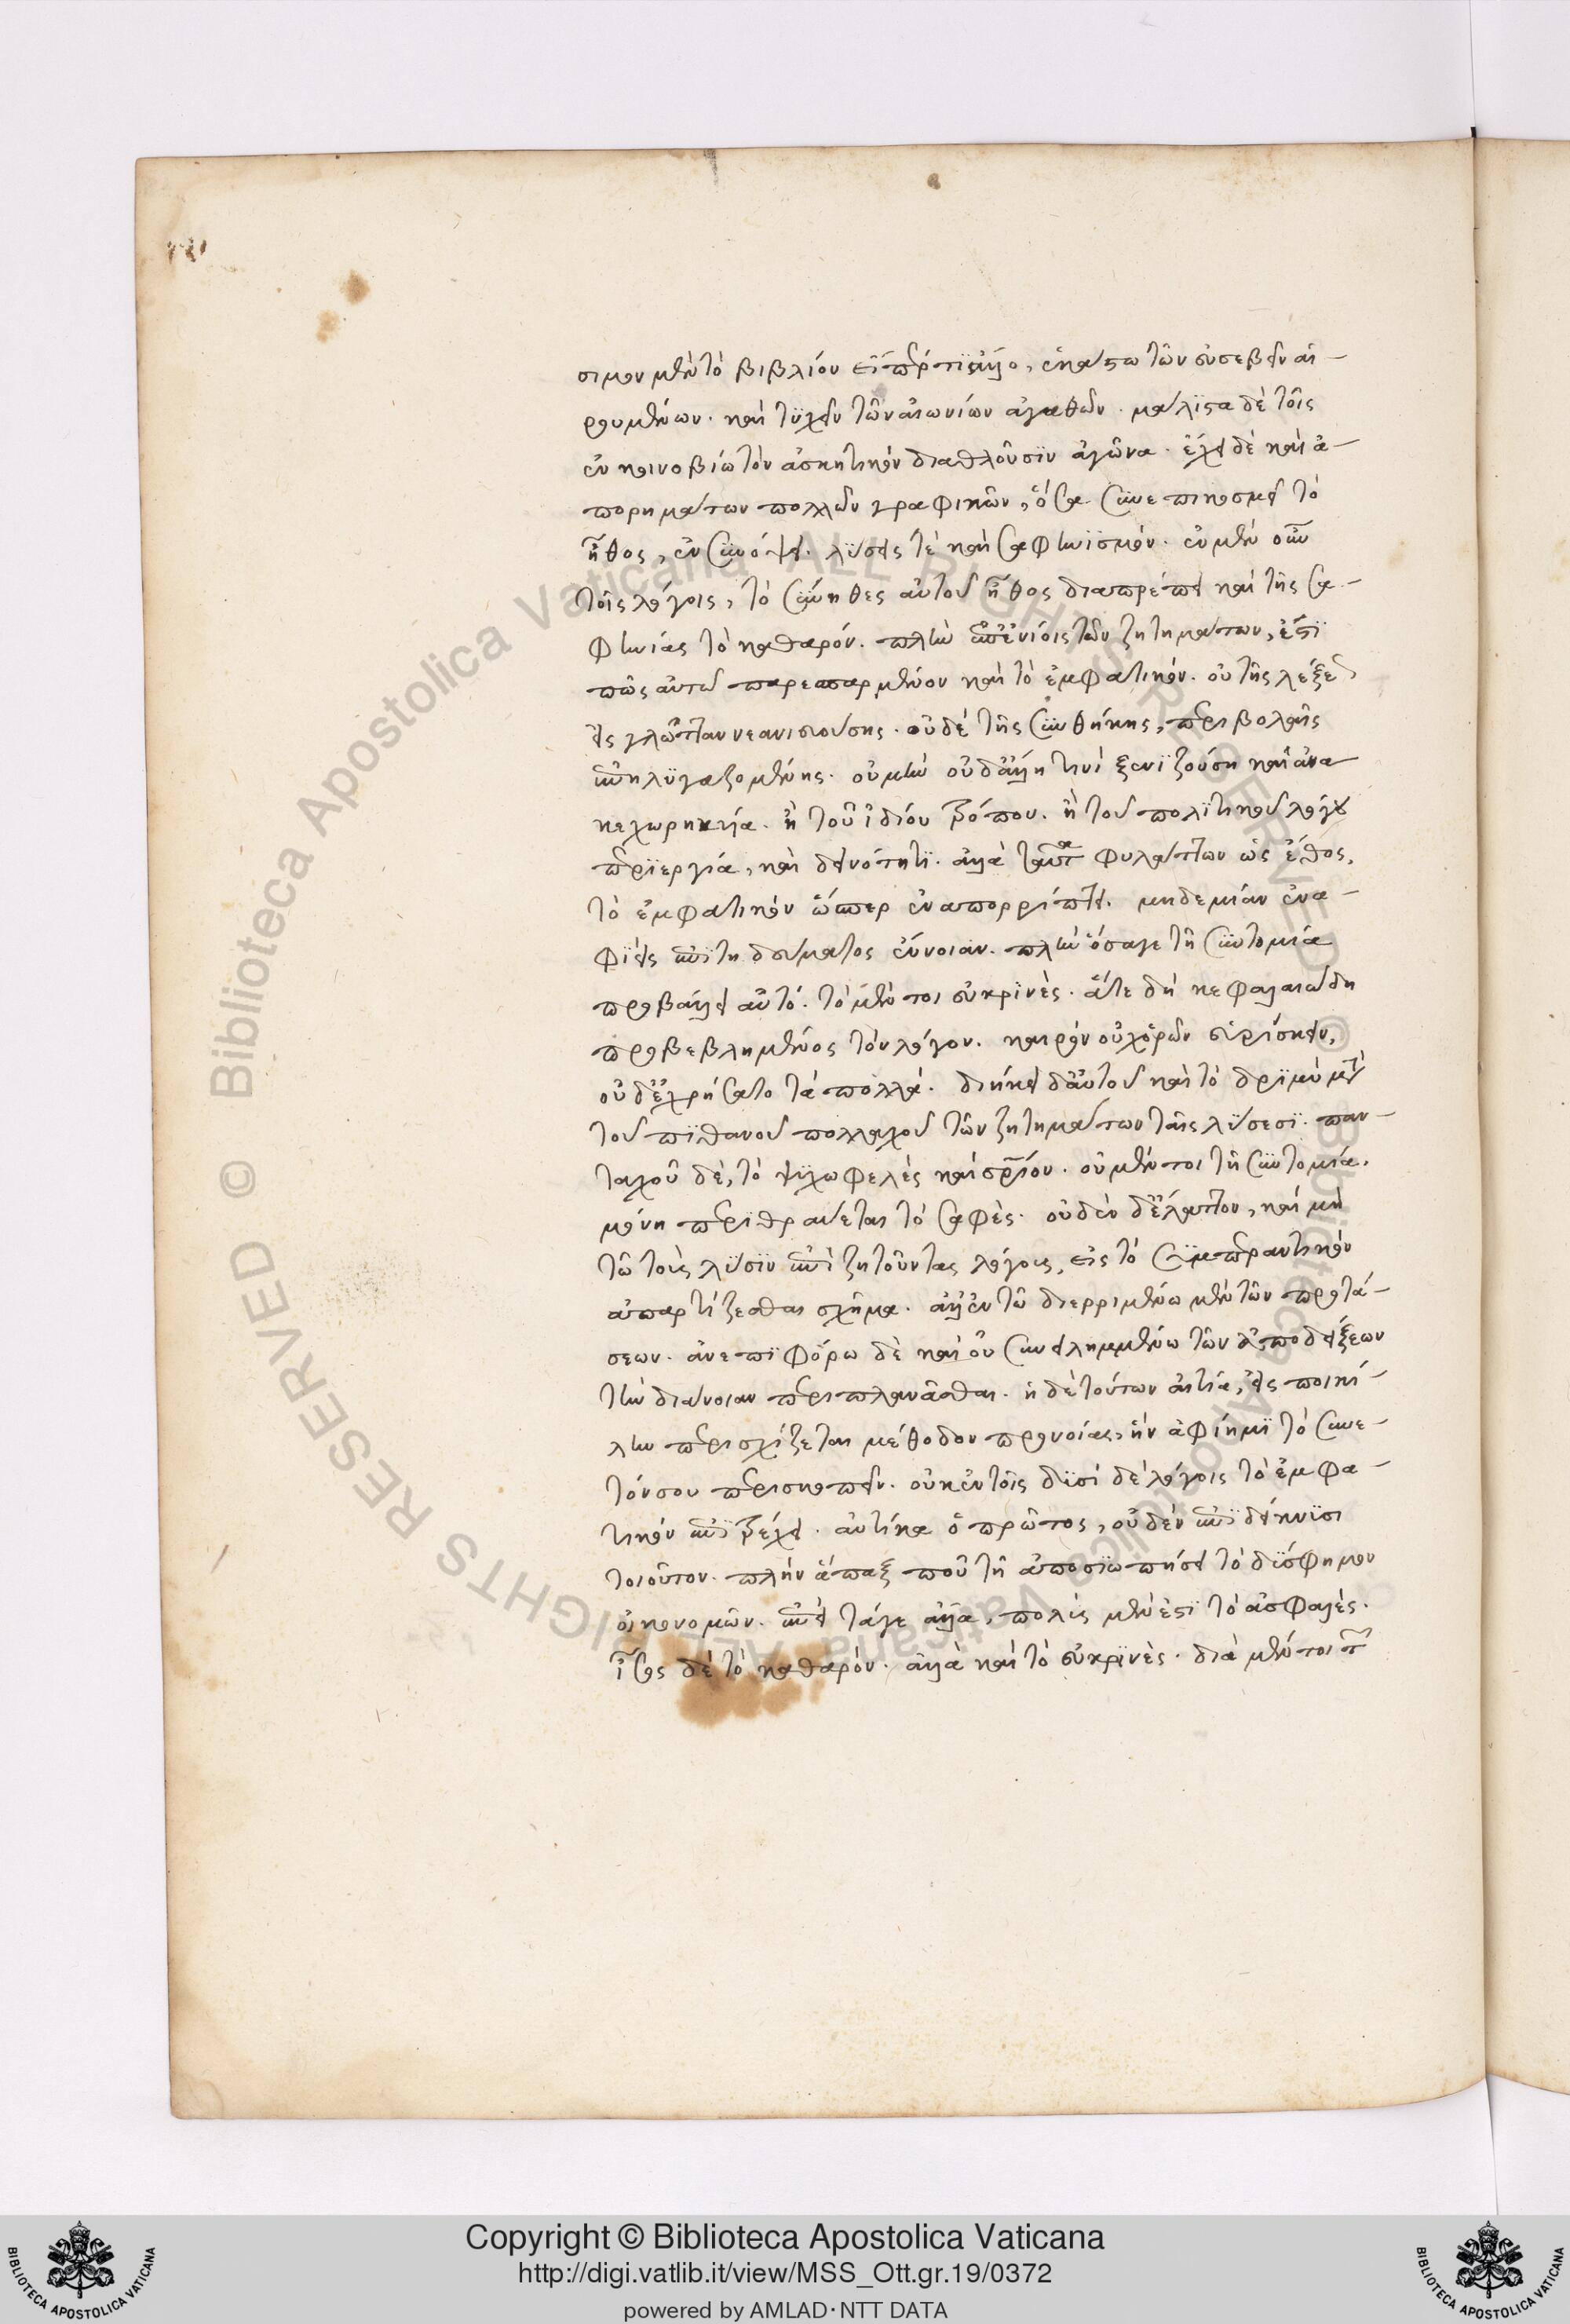 σιμον μὲν τὸ βιβλίον εἴπερ τι ἄλλο, ἑκάστω τῶν εὐσεβεῖν αἱ-
ρουμένων. καὶ τυχεῖν τῶν αἰωνίων ἀγαθῶν. μάλιστα δὲ τοῖς
ἐν κοινοβίω τὸν ἀσκητικὸν διαθλοῦσιν ἀγῶνα. ἔχει δὲ καὶ ἀ-
πορημάτων πολλῶν γραφικῶν, ὅσα συνεπικοσμεῖ τὸ
ἦθος, ἐν συνόψει. λύσεις τὲ καὶ σαφηνισμόν. ἐν μὲν οὖν
τοῖς λόγοις, τὸ σύνηθες αὐτοῦ ἦθος διαπρέπει καὶ τῆς σα-
φηνίας τὸ καθαρόν. πλὴν ἐπενίοις τῶν ζητημάτων, ἐστὶ
πῶς αὐτῶ παρεσπαρμένον καὶ τὸ ἐμφατικόν. οὐ τῆς λέξεως
εἰς γλῶτταν νεανιευούσης. οὐδὲ τῆς συνθήκης, περιβολαῖς
ἐπηλυγαζομένης. οὐ μὴν οὐδ' ἄλλη τινὶ ξενιζούση καὶ ἀνα
κεχωρηκυία. ἢ τοῦ ἰδίου τρόπου. ἢ τοῦ πολιτικοῦ λόγου
περιεργία, καὶ δεινότητι. ἀλλὰ ταῦτα φυλάττων ὡς ἔθος,
τὸ ἐμφατικὸν ὥσπερ ἐναπορρίπτει. μηδεμίαν ἐνα-
φιεὶς ἐπιτηδεύματος ἔννοιαν. πλὴν ὅσα γε τῆ συντομία
προβάλλει αὐτό. τὸ μέντοι εὐκρινὲς. ἅτε δὴ κεφαλαιώδη
προβεβλημένος τὸν λόγον. καιρὸν οὐχ ὁρῶν εὑρίσκειν,
οὐδ' ἐχρήσατο τὰ πολλά. διήκει δ' αὐτοῦ καὶ τὸ δριμὺ μετὰ
τοῦ πιθανοῦ πολλαχοῦ τῶν ζητημάτων ταῖς λύσεσι. παν-
ταχοῦ δὲ, τὸ ψυχωφελὲς καὶ σωτήριον. οὐ μέντοι τῆ συντομία,
μόνη περιθραύεται τὸ σαφὲς. οὐδὲν δ' ἔλαττον, καὶ μὴ
τῶ τοὺς λύσιν ἐπιζητοῦντας λόγους, εἰς τὸ συμπεραντικὸν
ἀπαρτίζεσθαι σχῆμα. ἀλλ' ἐν τῶ διερριμμένω μὲν τῶν προτά-
σεων. ἀνεπιφόρω δὲ καὶ οὐ συνειλημμένω τῶν ἀποδείξεων
τὴν διάνοιαν περιπλανᾶσθαι. ἡ δὲ τούτων αἰτία, εἰς ποικί-
λην περισχίζεται μέθοδον προνοίας, ἣν ἀφίημι τὸ συνε-
τόν σου περισκοπεῖν. οὐκ ἐν τοῖς δυσὶ δὲ λόγοις τὸ ἐμφα-
τικὸν ἐπιτρέχει. αὐτίκα ὁ πρῶτος, οὐδὲν ἐπιδείκνυσι
τοιοῦτον. πλὴν ἅπαξ που τῆ ἀποσιωπήσει τὸ δύσφημον
οἰκονομῶν. ἐπεὶ τάγε ἄλλα, πολὺς μὲν ἐστὶ τὸ ἀσφαλές.
ἴσος δὲ τὸ καθαρόν. ἀλλὰ καὶ τὸ εὐκρινὲς. διὰ μέντοι τῆς
Copyright © Biblioteca Apostolica Vaticana
http://digi.vatlib.it/view/MSS_Ott.gr.19/0372
powered by AMLAD·NTT DATA